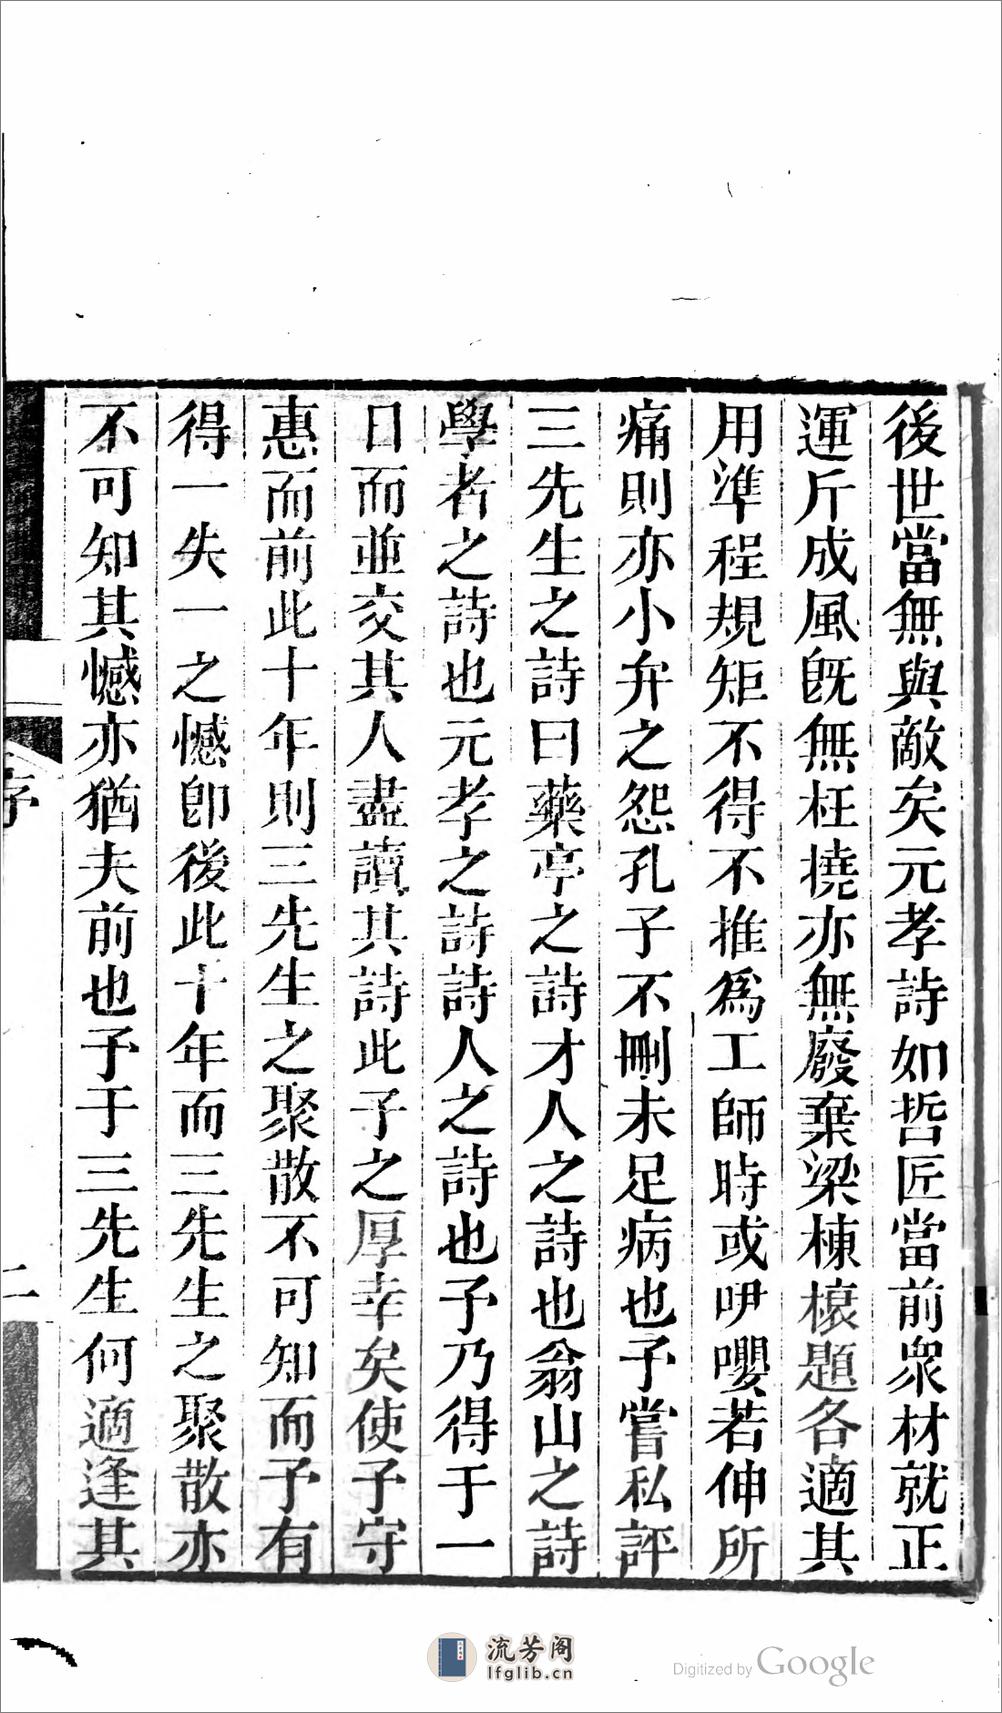 後世當無與敵矣元孝詩如哲匠當前衆材就正
運斤成風旣無枉撓亦無廢棄梁棟榱題各適其
用準程規矩不得不推爲工師時或吚嚶若伸所
痛則亦小弁之怨孔子不刪未足病也予嘗私評
三先生之詩曰藥亭之詩才人之詩也翁山之詩
學者之詩也元孝之詩詩人之詩也予乃得于一
日而並交其人盡讀其詩此予之厚幸矣使予守
惠而前此十年則三先生之聚散不可知而予有
得一失一之憾卽後此十年而三先生之聚散亦
不可知其憾亦猶夫前也予于三先生何適逢其
序
二
流芳阁
lfglib.cn
Digitized by Google